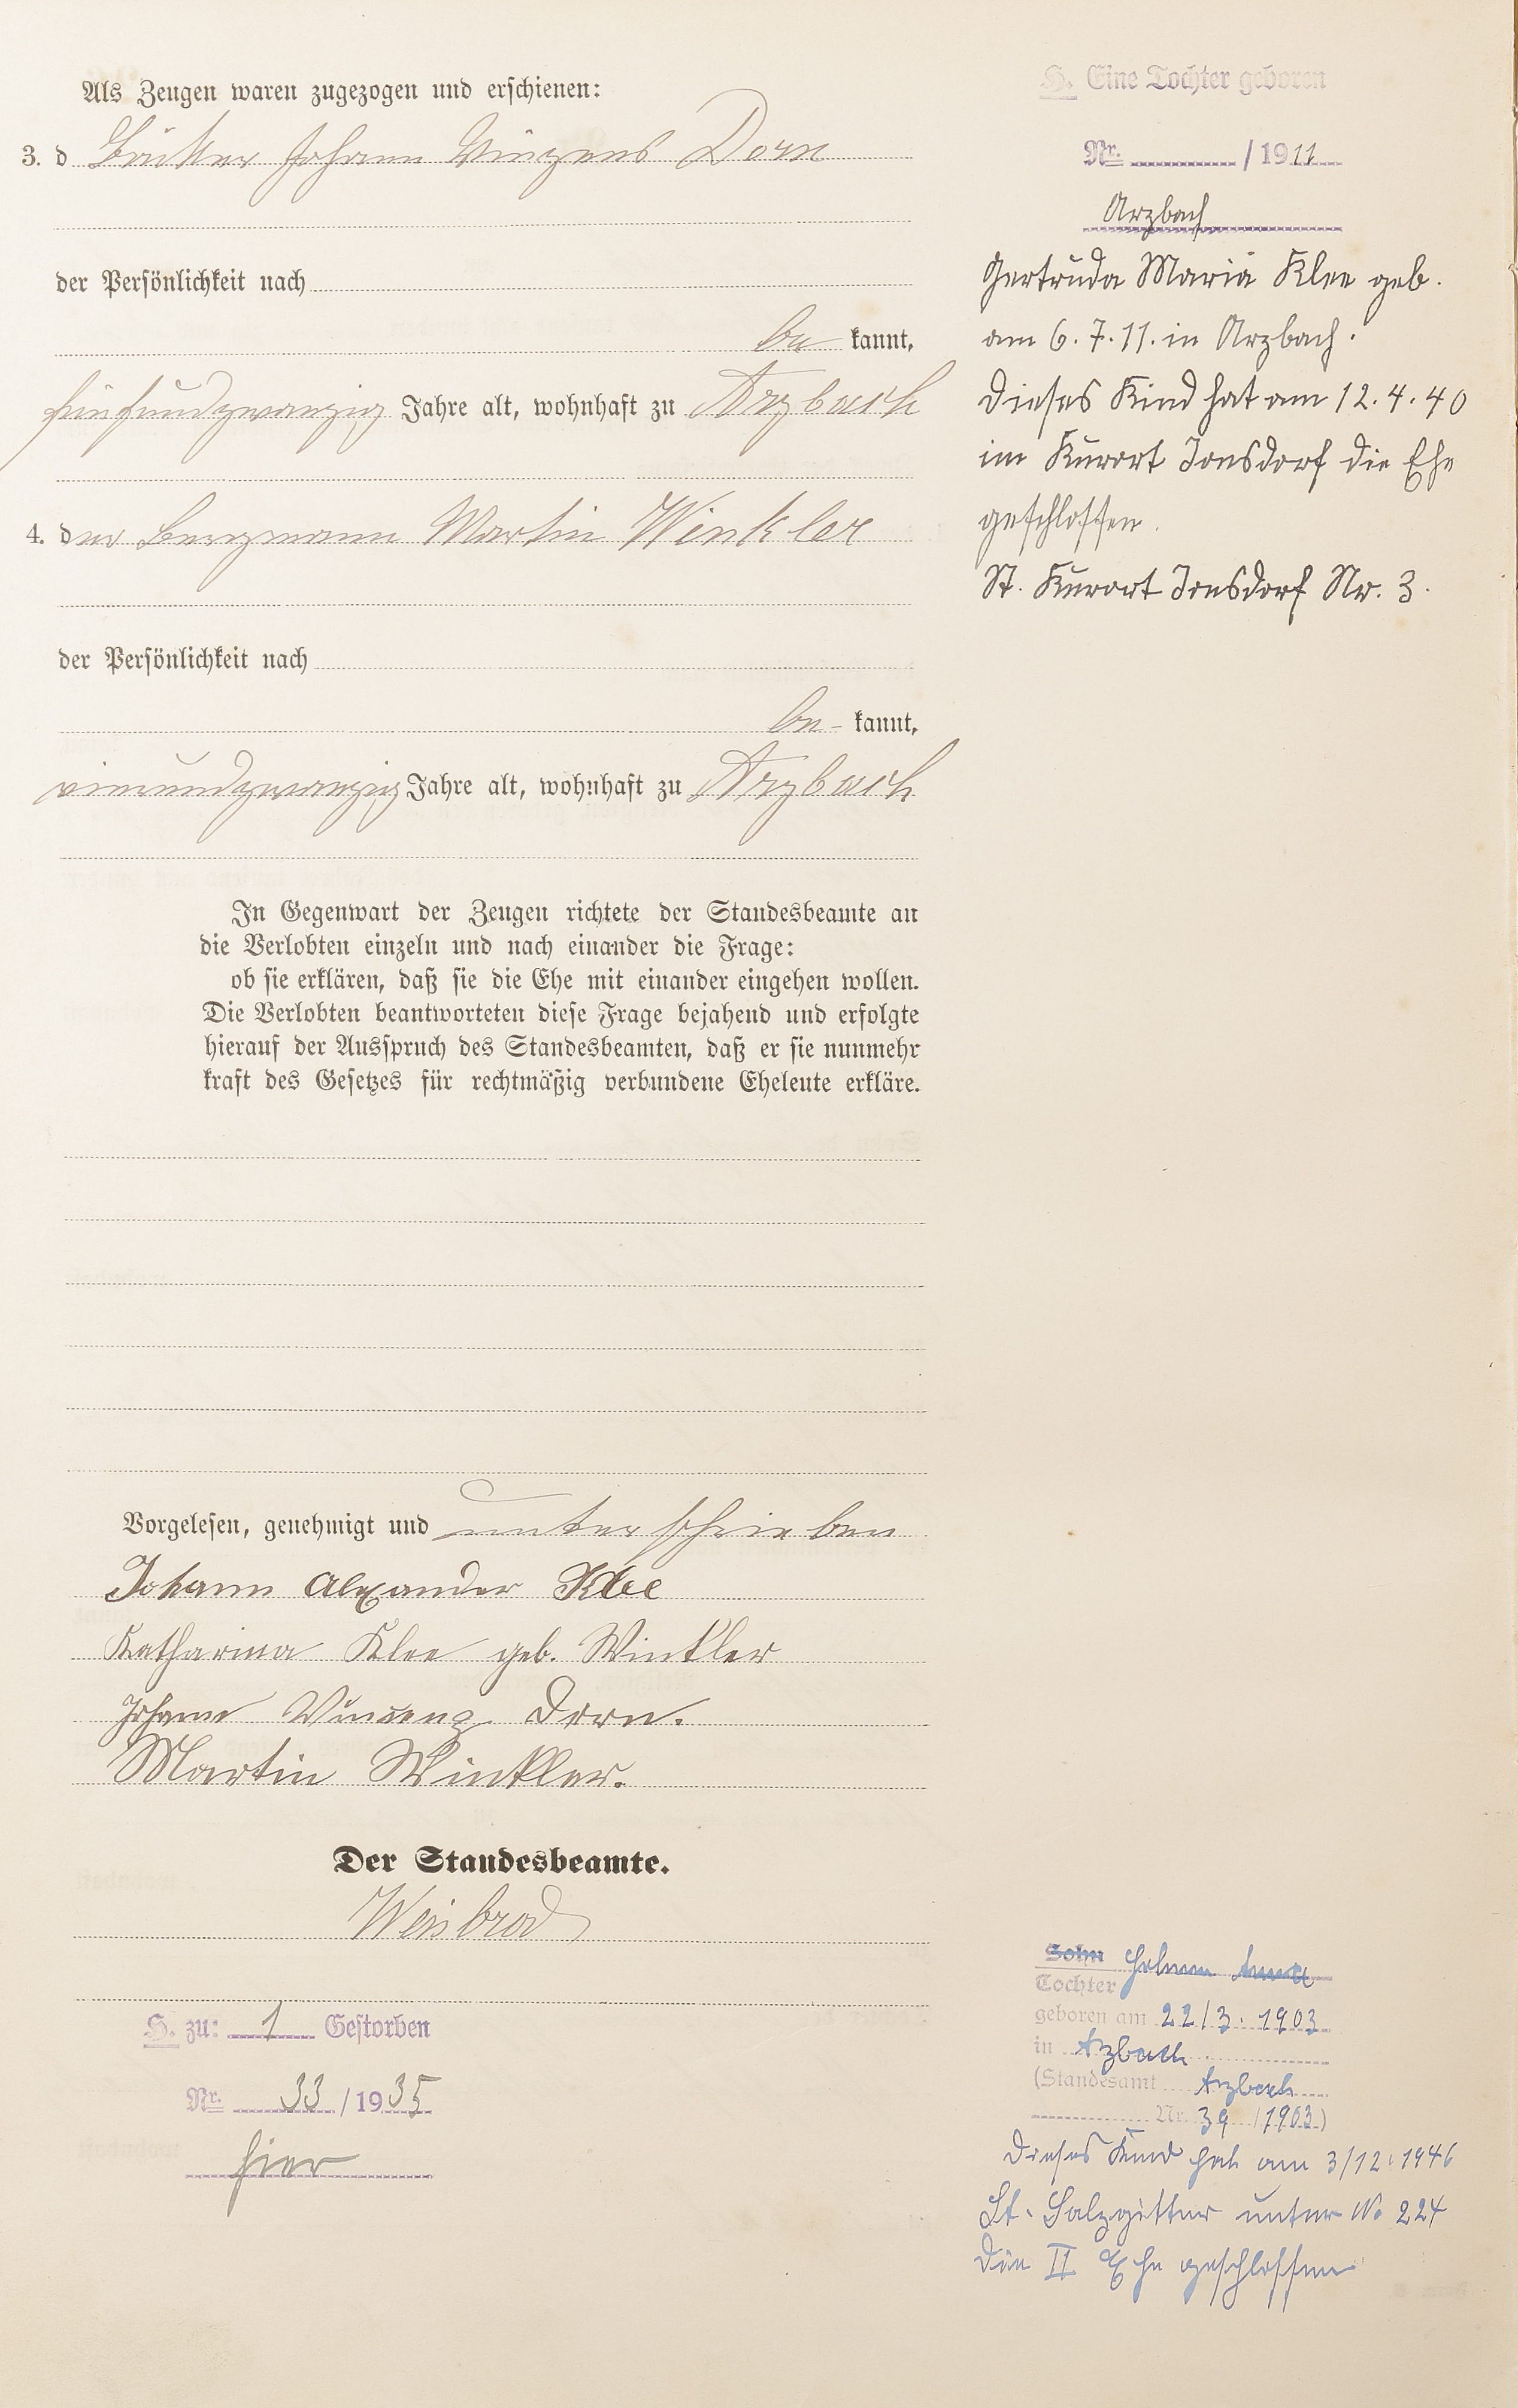 Als Zeugen waren zugezogen und erschienen:
3. d Bäcker Johann Vinzens Dorn
der Persönlichkeit nach
be kannt,
fünfundzwanzig Jahre alt, wohnhaft zu Arzbach
4. der Bergmann Martin Winkler
der Persönlichkeit nach
be- kannt,
vierundzwanzig Jahre alt, wohnhaft zu Arzbach
In Gegenwart der Zeugen richtete der Standesbeamte an
die Verlobten einzeln und nach einander die Frage:
ob sie erklären, daß sie die Ehe mit einander eingehen wollen.
Die Verlobten beantworteten diese Frage bejahend und erfolgte
hierauf der Ausspruch des Standesbeamten, daß er sie nunmehr
kraft des Gesetzes für rechtmäßig verbundene Eheleute erkläre.
Vorgelesen, genehmigt und unterschrieben
Johann Alexander Klee
Katharina Klee geb. Winkler
Johann Vinzenz Dorn.
Martin Winkler.
Der Standesbeamte.
Weisbrod
H. zu: 1 Gestorben
Nr. 33 / 1935
hier
H. Eine Tochter geboren
Nr. / 1911
Arzbach
Gertruda Maria Klee geb.
am 6.7.11. in Arzbach.
Dieses Kind hat am 12.4.40
im Kurort Jonsdorf die Ehe
geschlossen.
St. Kurort Jonsdorf Nr. 3.
Sohn
Tochter
geboren am 22/3. 1903
in Arzbach
(Standesamt Arzbach
Nr. 39 /1903)
Dieses Kind hat am 3/12.1946
St. Salzgitter unter No 224
Die II Ehe geschlossen